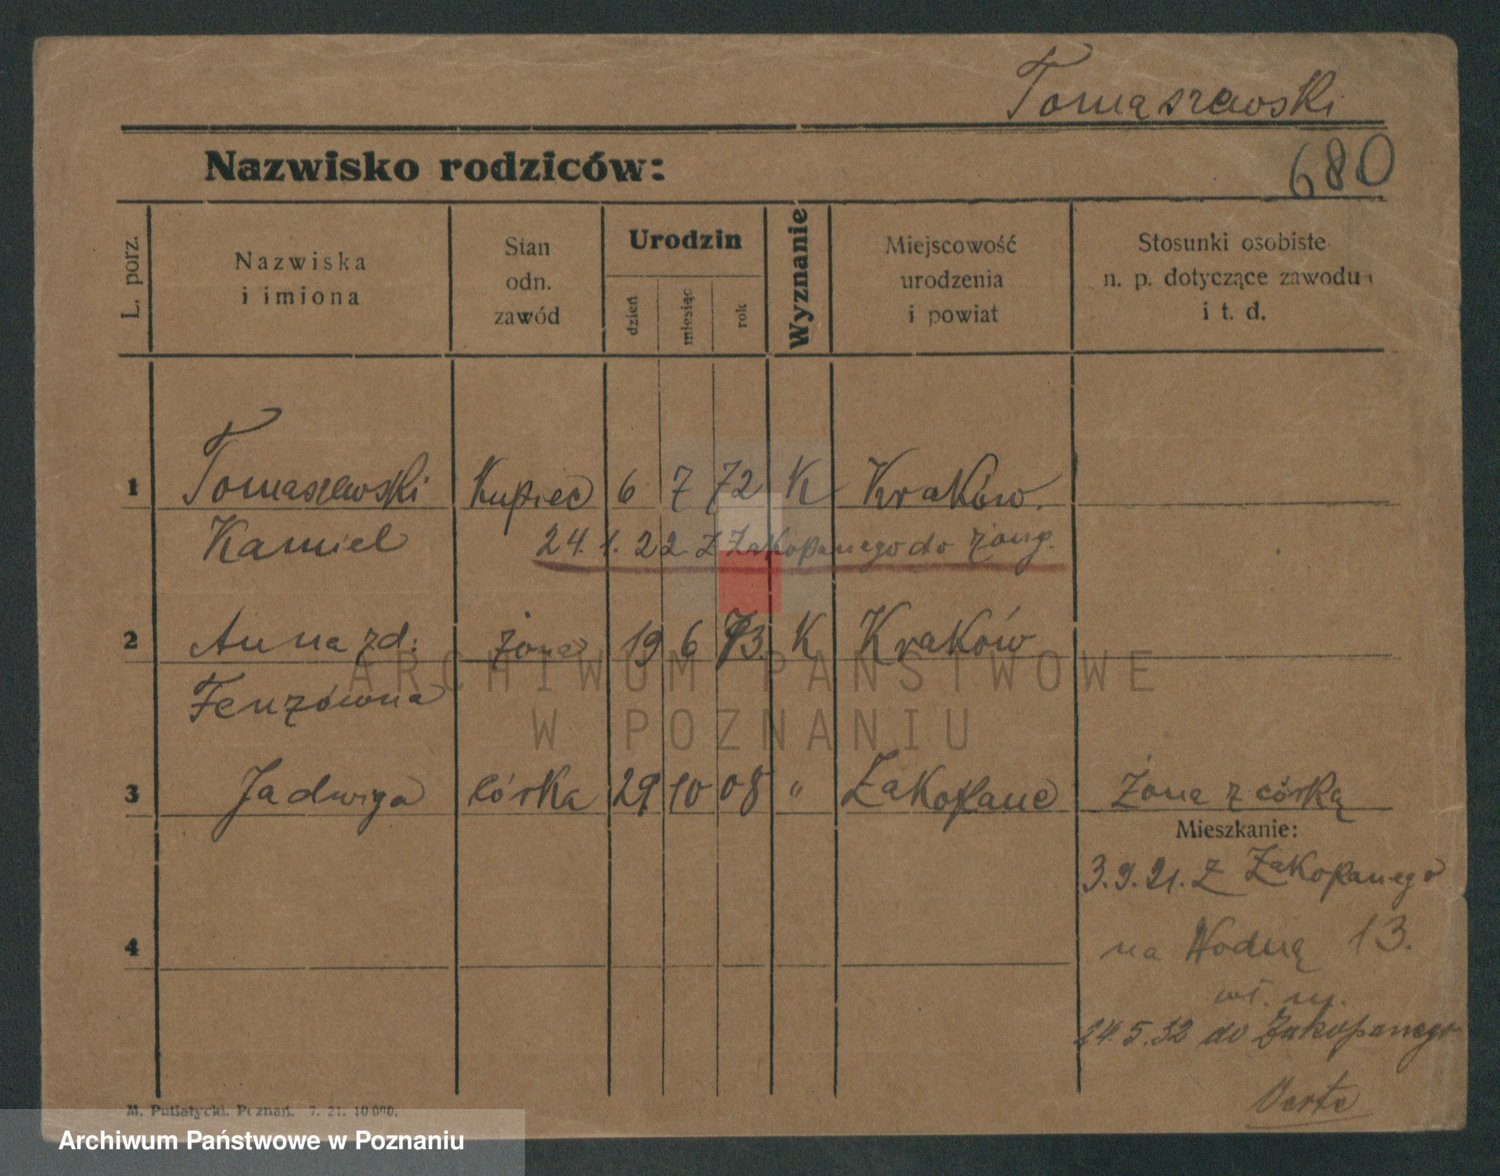 Tomaszewski
680
Nazwisko rodziców:
L. porz.
Nazwiska
i imiona
Stan
odn.
zawód
Urodzin
dzień
miesiąc
rok
Wyznanie
Miejscowość
urodzenia
i powiat
Stosunki osobiste
n. p. dotyczące zawodu
i t. d.
1 Tomaszewski Kupiec 6 7 72 K Kraków.
Kamiel 24.1.22. z Zakopanego do żony.
2 Anna zd: żona 19 6 73. K Kraków
Fenzówna
3 Jadwiga córka 29 10 08 " Zakopane Żona z córką
Mieszkanie:
3.9.21. z Zakopanego
4 na Wodną 13.
wł. m.
24.5.32 do Zakopanego
Verte
M. Putiatycki. Poznań. 7. 21. 10 000.
ARCHIWUM PAŃSTWOWE
W POZNANIU
Archiwum Państwowe w Poznaniu